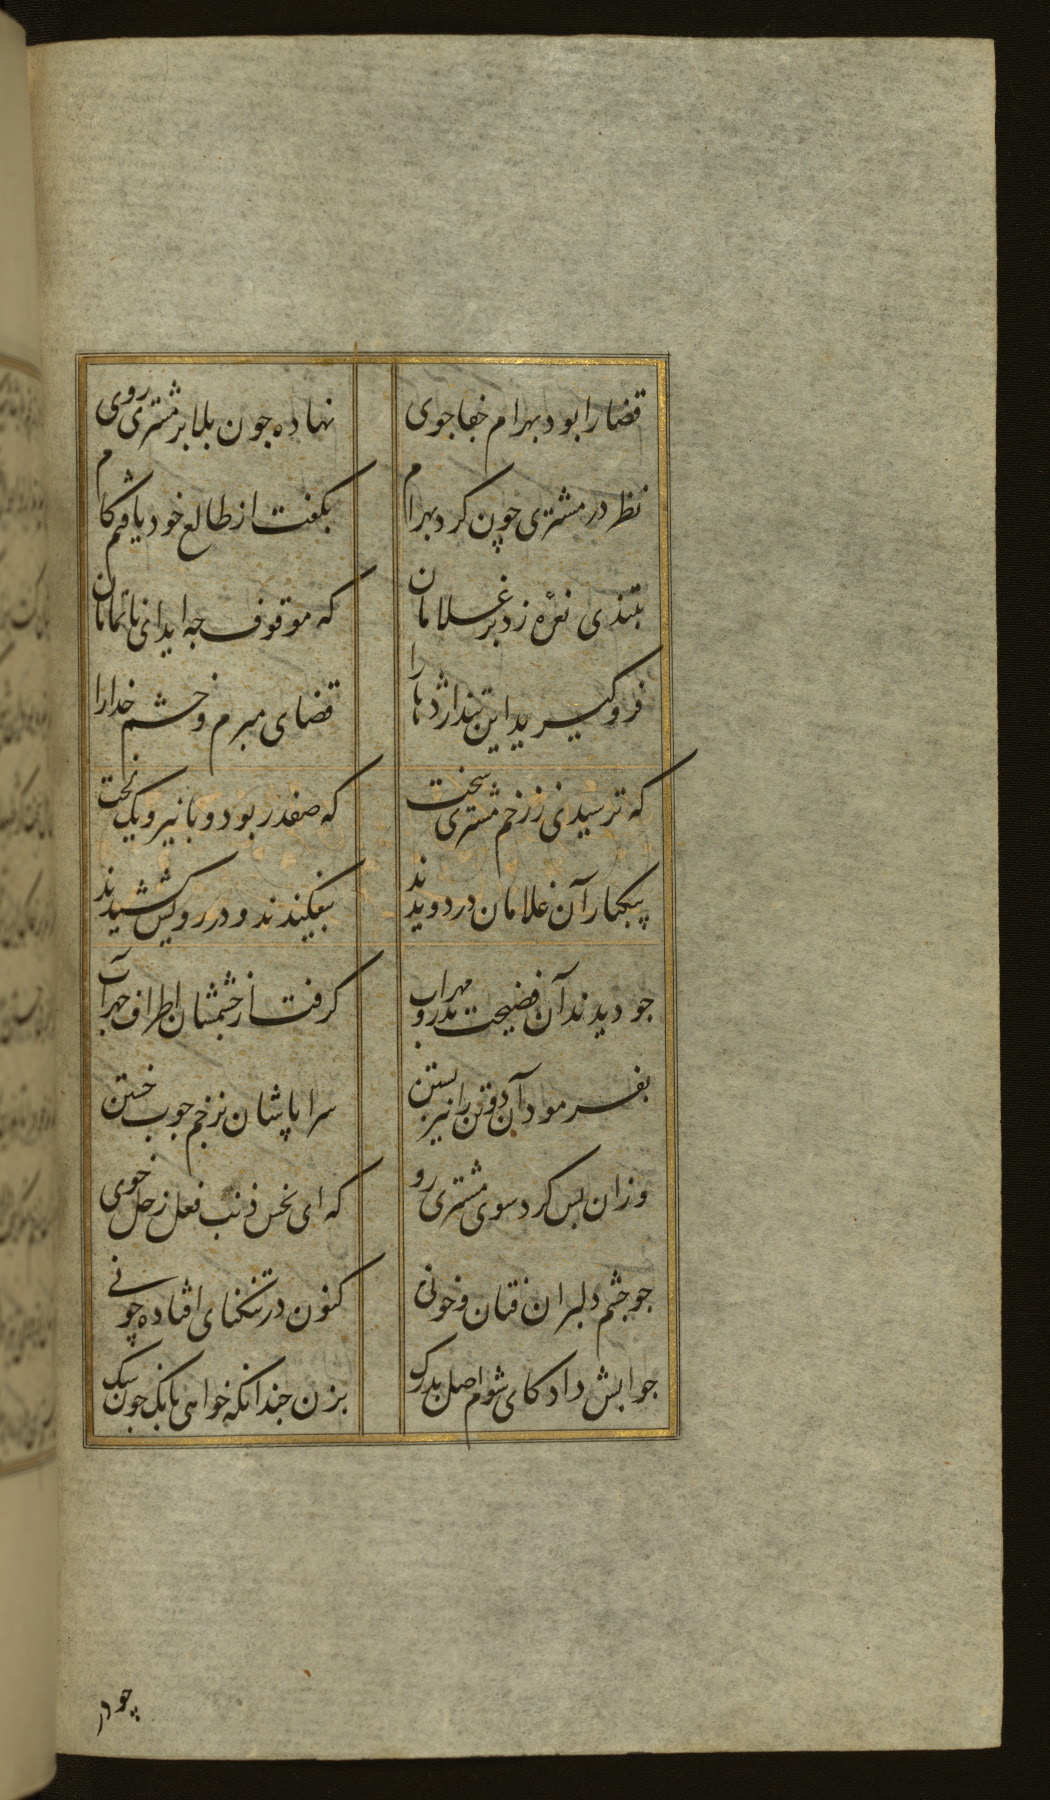 قضا را بود بهرام جفاجوی نهاده جون بلا بر مشتری روی
نظر در مشتری چون کرد بهرام بگفت از طالع خود یافتم کام
بتندی نعره زد بر غلامان که موقوف جه اید ای ناتمامان
فرو گیرید این تند اژدها را قضای مبرم و خشم خدا را
که ترسیدنی ز زخم مشتری سخت که صفدر بود و با نیرو یک لخت
بیکبار آن غلامان در دویدند بیفکندند و در رویش کشیدند
جو دیدند آن فضیحت بدر و مهراب گرفت از خشمشان اطراف جهر آب
بفرمود آن دو تن را نیز بستن سراپاشان بزخم جوب خستن
وزان بس کرد سوی مشتری رو که ای نحس ذنب فعل زحل خوی
جو جشم دلبران فتان و خونی کنون در تنکنای افتاده چونی
جوابش داد کای شوم اصل بدرک بزن جندانکه خواهی بانک جون سک
چو در